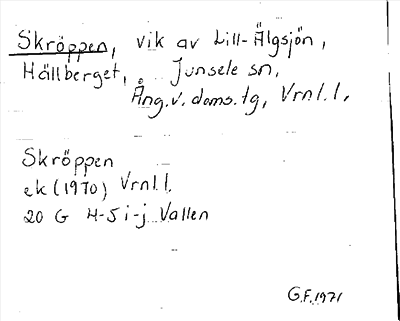 Skröppen, vik av Lill-Älgsjön,
Hällberget, Junsele sn,
Ång.v.doms.tg, Vrnl.l.
Skröppen
ek (1970) Vrnl.l.
20 G 4-5 i-j Vallen
G.F. 1971